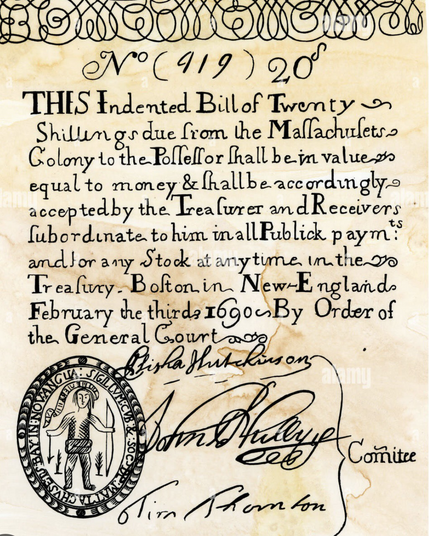 Nº (919) 20ˢ
THIS Indented Bill of Twenty
Shillings due from the Maſſachuſets
Colony to the Poſſeſſor ſhall be in value
equal to money & ſhall be accordingly
accepted by the Treaſurer and Receivers
ſubordinate to him in all Publick paymᵗˢ
and for any Stock at any time in the
Treaſury. Boſton in New-England
February the third 1690 By Order of
the General Court
Elisha Hutchinson
John
Comitee
Tim Thornton
alamy